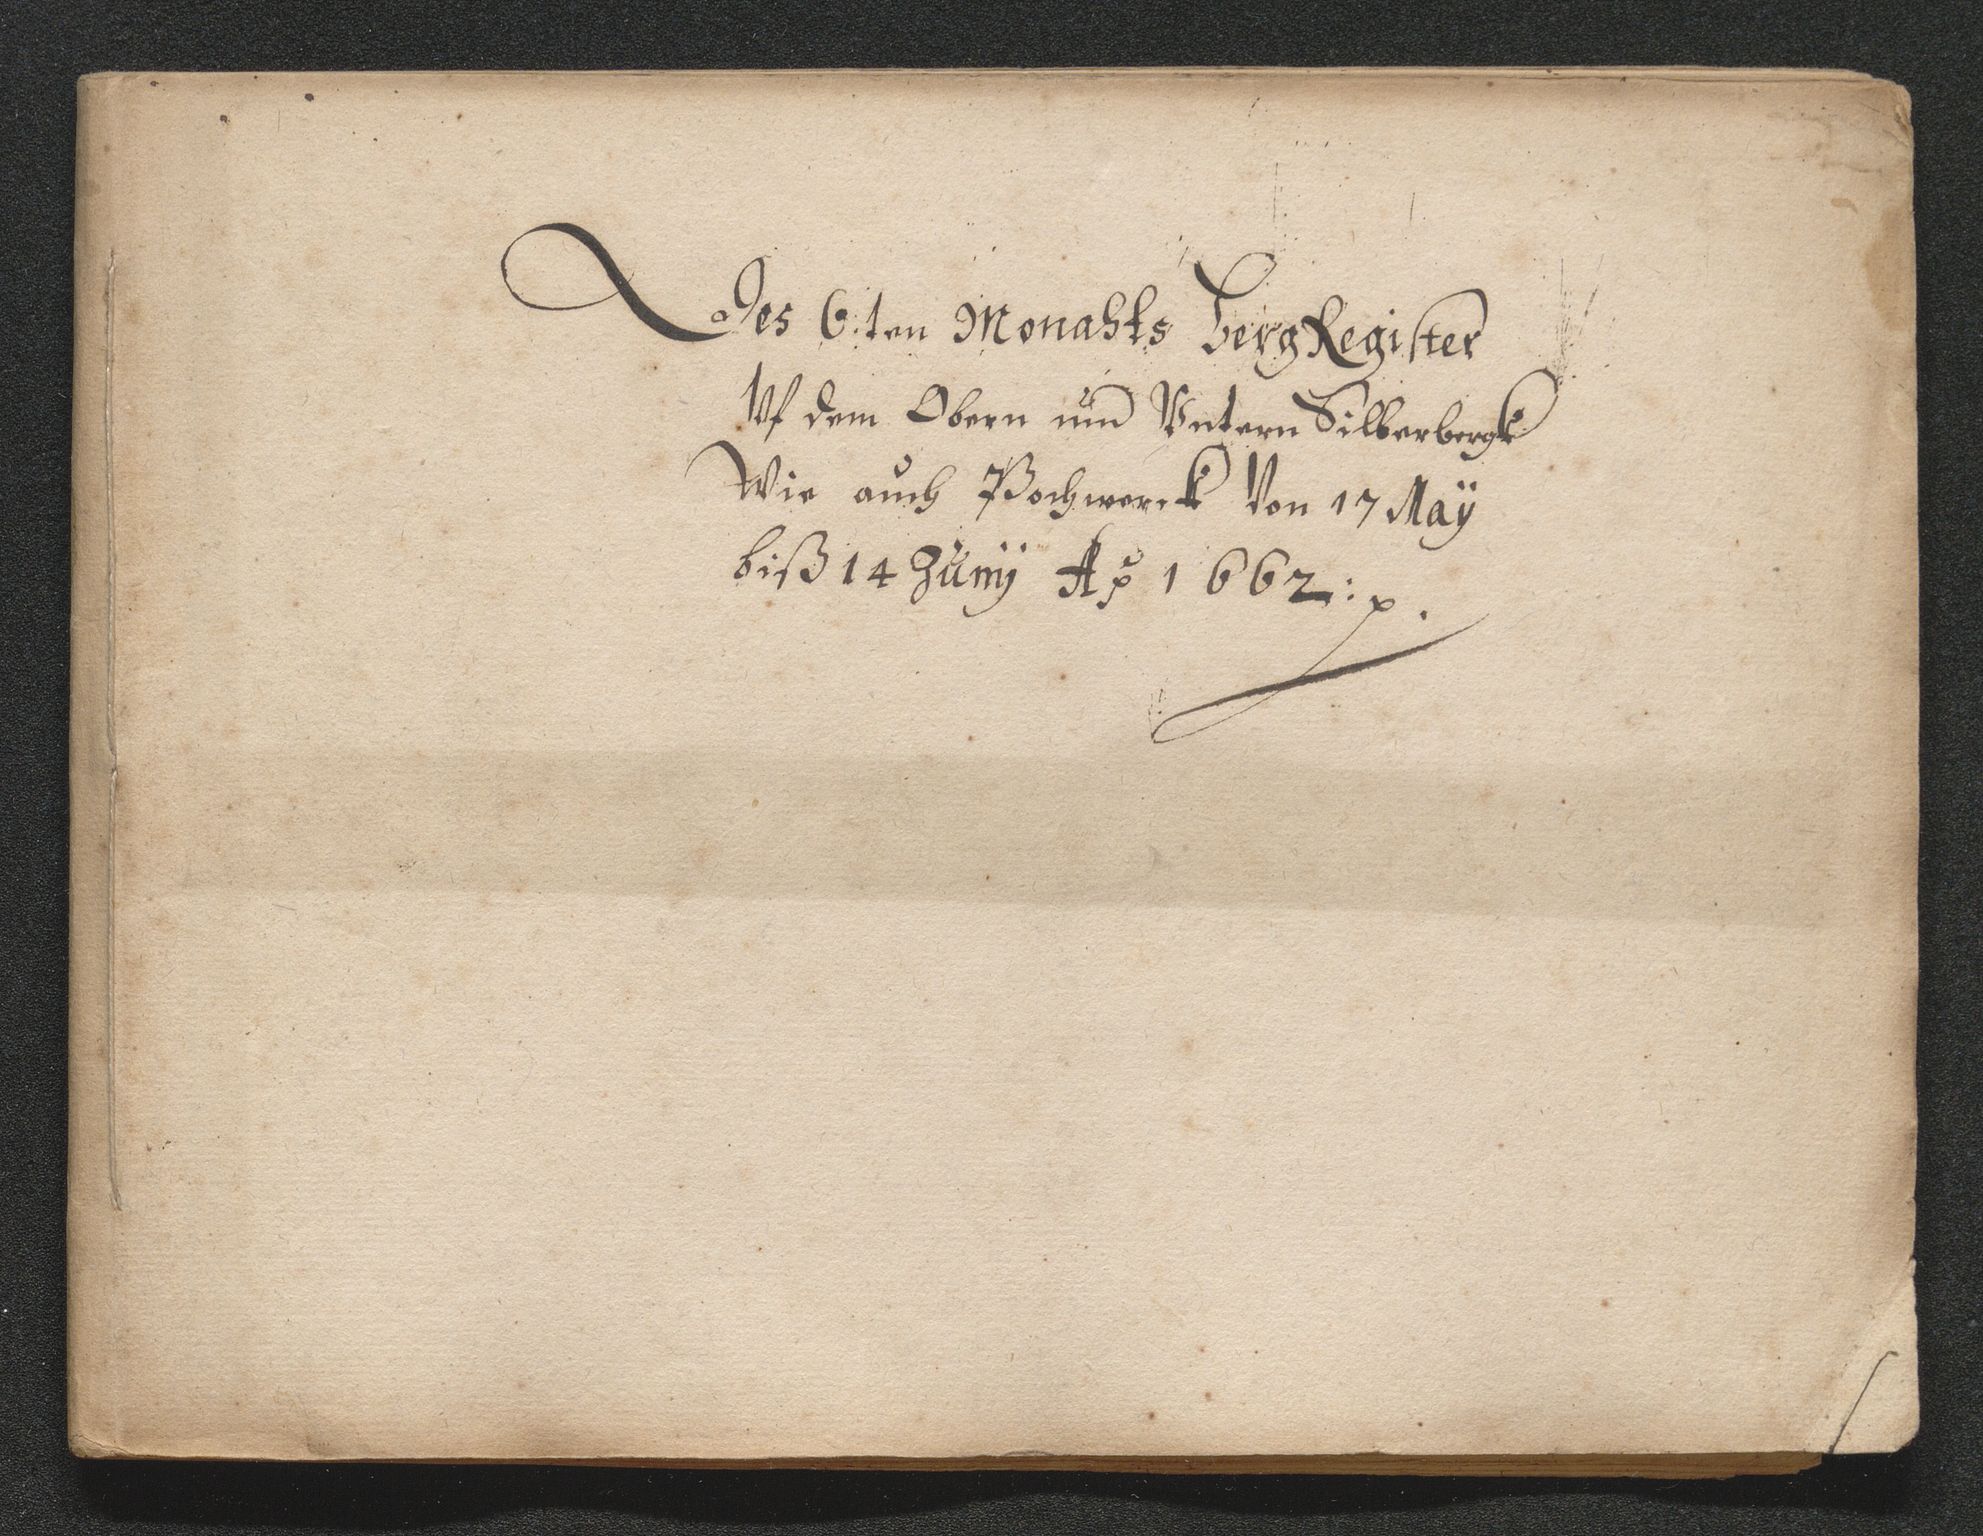 Des 6:ten Monahts BergRegister
Vf dem Obern und Vntern Silberbergk
Wie auch Pochwerck Von 17 Maÿ
biß 14 Junÿ Ao 1662:p.